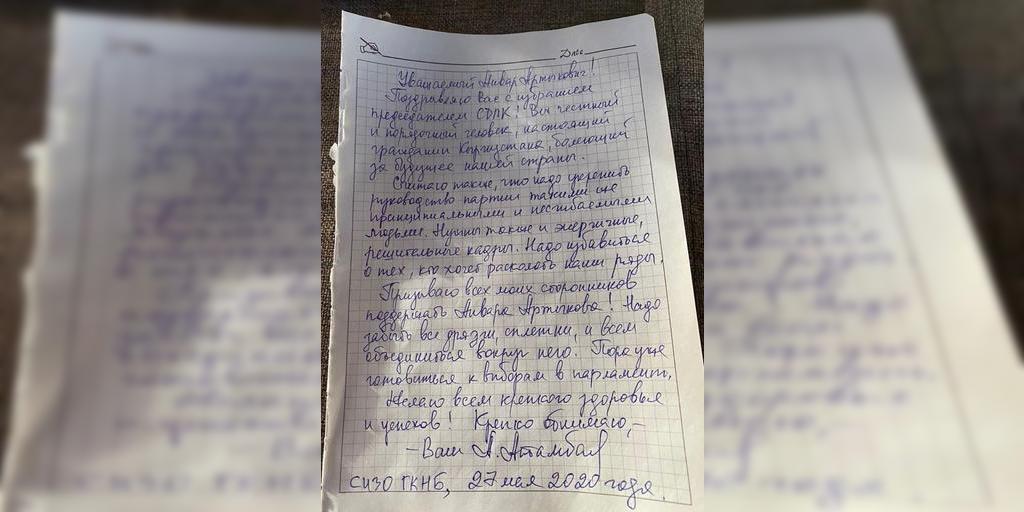 Дата
Уважаемый Анвар Артыкович!
Поздравляю Вас с избранием
председателем СДПК! Вы честный
и порядочный человек, настоящий
гражданин Кыргызстана, болеющий
за будущее нашей страны.
Считаю также, что надо укрепить
руководство партии такими же
принципиальными и несгибаемыми
людьми. Нужны также и энергичные,
решительные кадры. Надо избавиться
о тех, кто хочет расколоть наши ряды.
Призываю всех моих сторонников
поддержать Анвара Артыкова! Надо
забыть все дрязги, сплетни, и всем
объединиться вокруг него! Пора уже
готовиться к выборам в парламент.
Желаю всем крепкого здоровья
и успехов! Крепко обнимаю, –
– Ваш А. Атамбаев
СИЗО ГКНБ, 27 мая 2020 года.